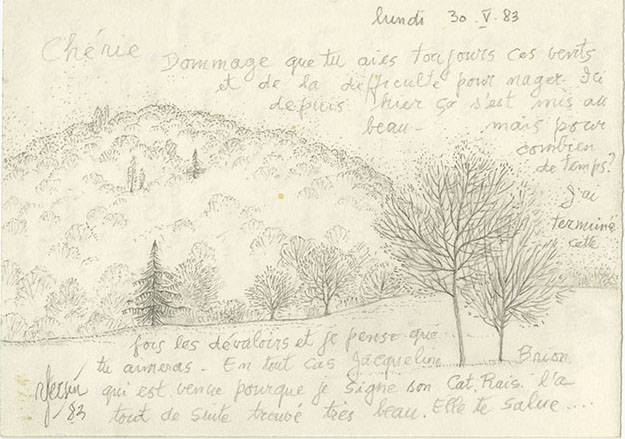 lundi 30. V. 83
Chérie Dommage que tu aies toujours ces vents
et de la difficulté pour nager. Ici
depuis hier ça s'est mis au
beau - mais pour
combien
de temps?
J'ai
terminé
cette
fois les dévaloirs et je pense que
tu aimeras - En tout cas Jacqueline Brion
qui est venue pourque je signe son Cat. Rais. l'a
tout de suite trouvé très beau. Elle te salue....
83